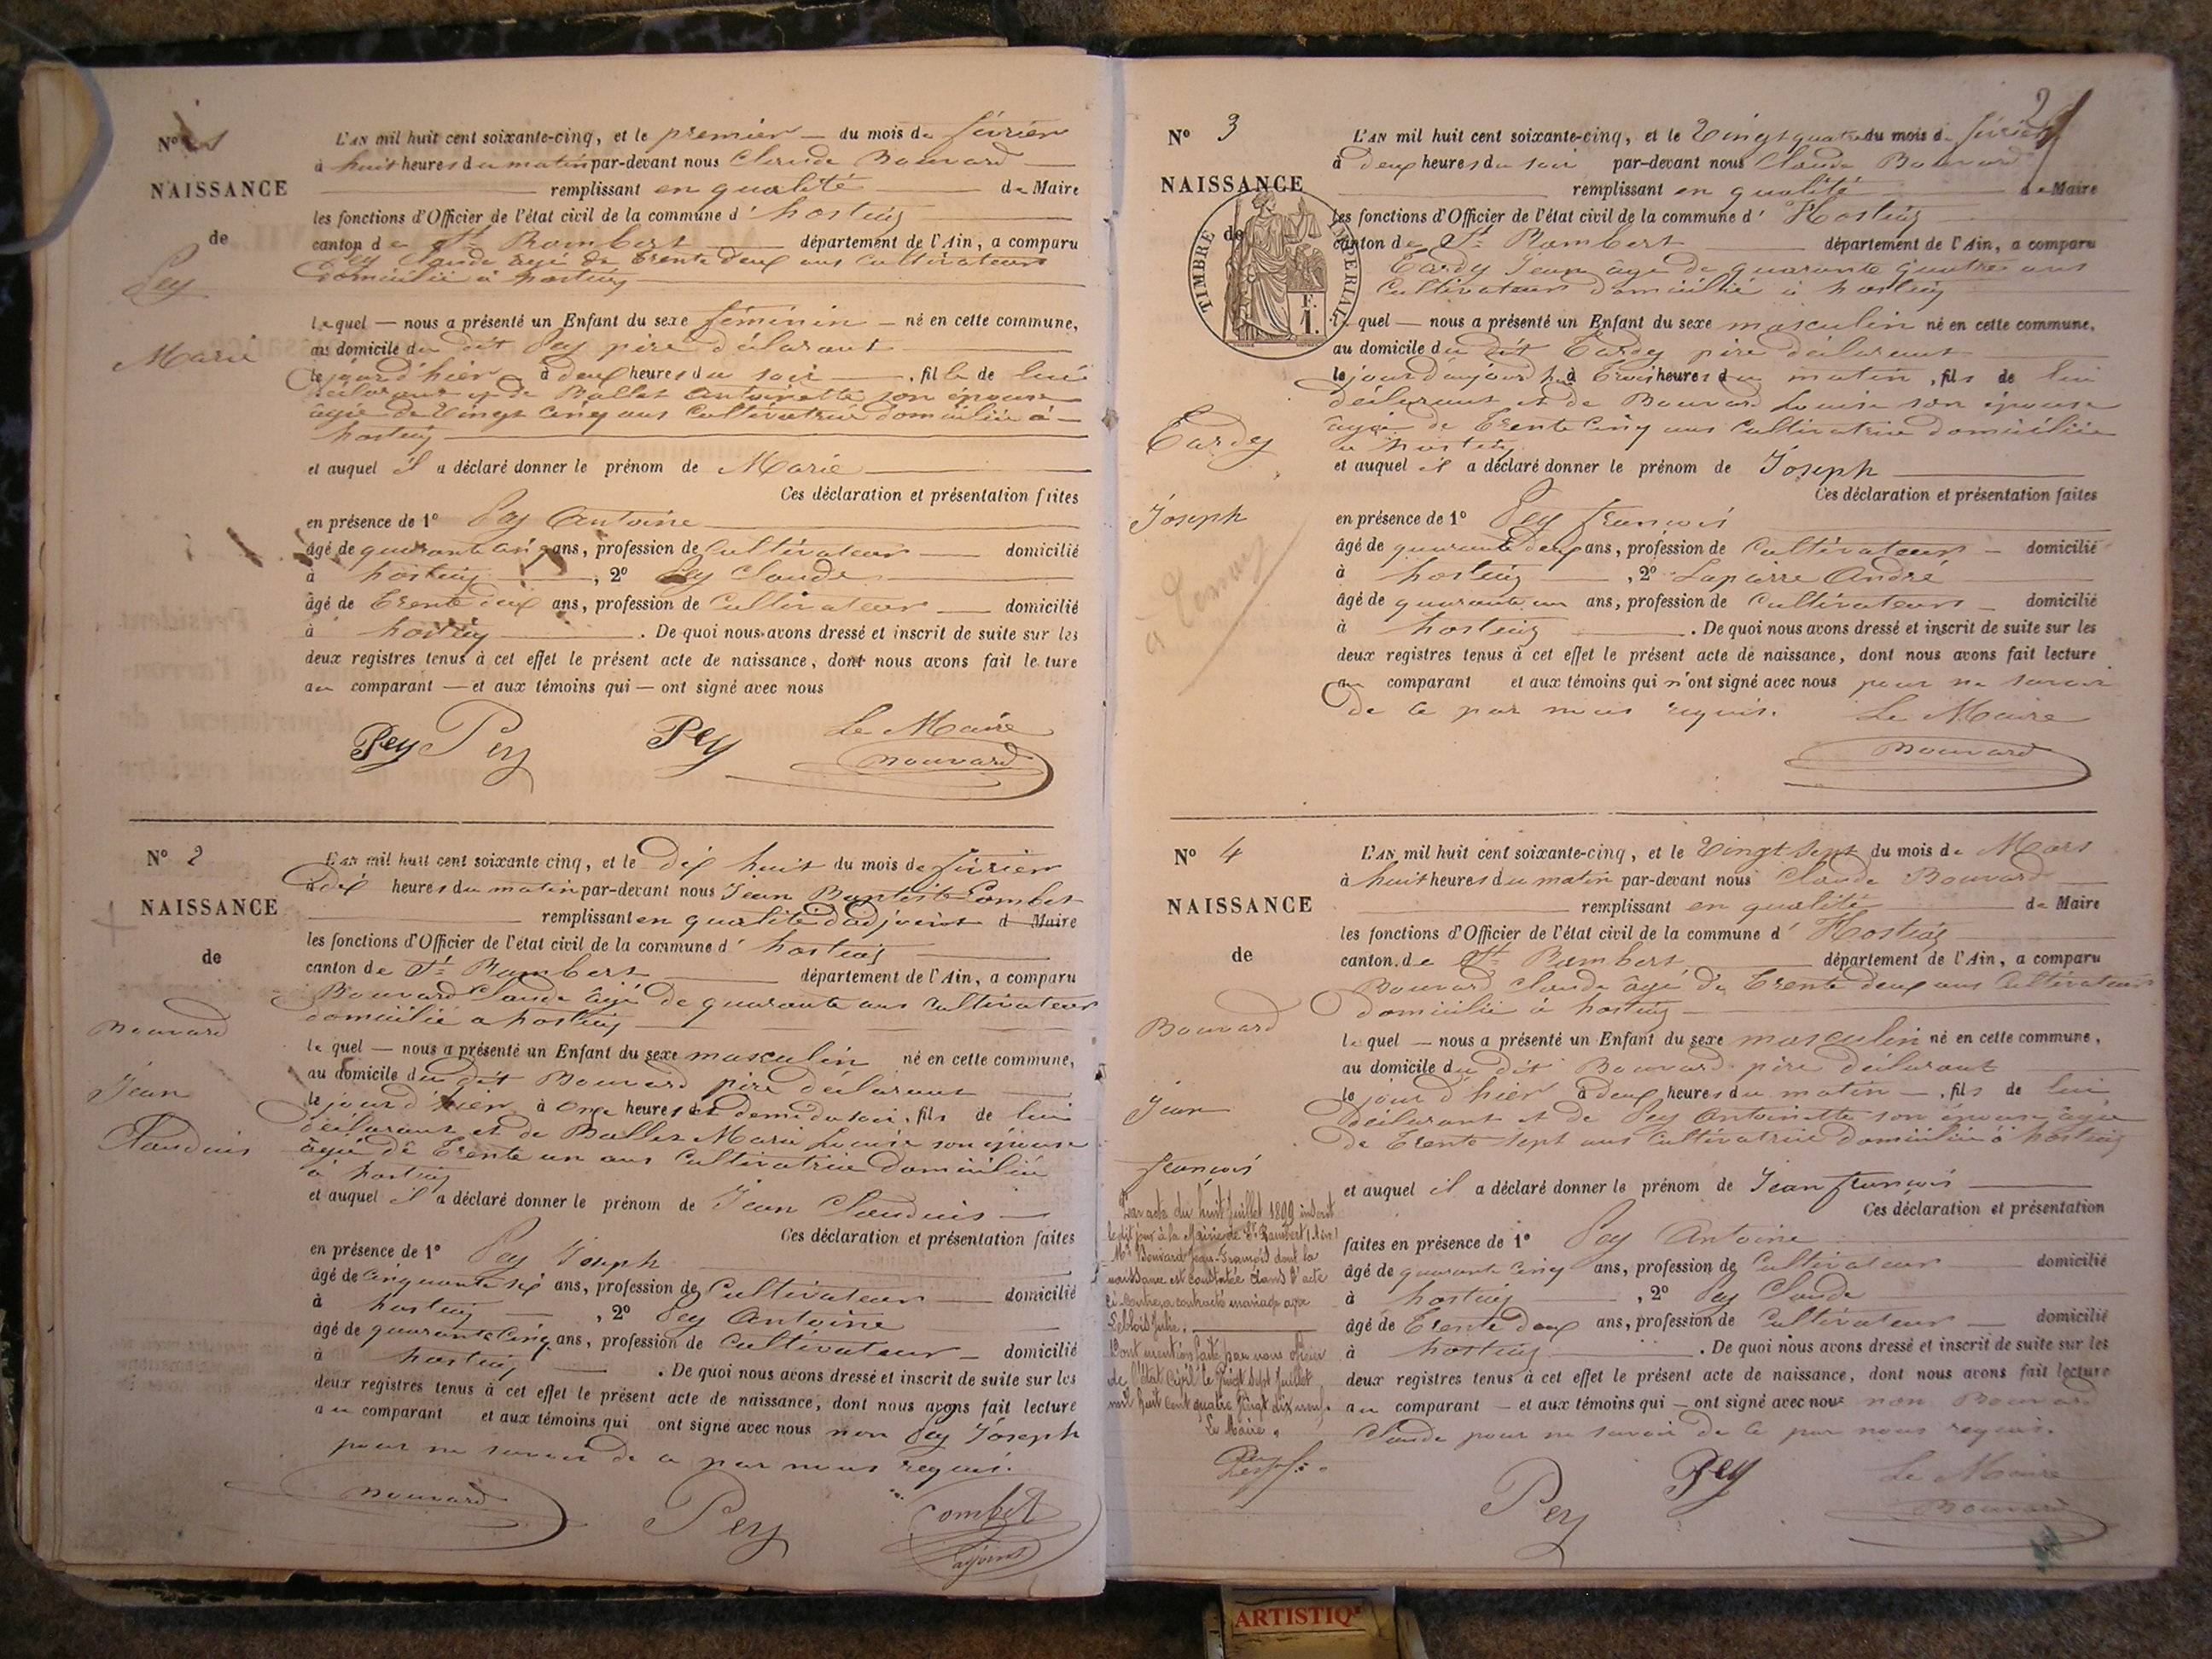 N° 1
NAISSANCE
de
Pey
Marie
L'AN mil huit cent soixante-cinq, et le premier du mois de février
à huit heures du matin par-devant nous Claude Bouvard
remplissant en qualité de Maire
les fonctions d'Officier de l'état civil de la commune d' hostiaz
canton de St Rambert département de l'Ain, a comparu
Pey Claude âgé de trente deux ans cultivateur
domicilié à hostiaz
lequel — nous a présenté un Enfant du sexe féminin — né en cette commune,
au domicile du dit Pey père déclarant
le jour d'hier à deux heures du soir, fille de lui
déclarant et de Ballet Antoinette son épouse
âgée de vingt cinq ans cultivatrice domiciliée à
hostiaz
et auquel il a déclaré donner le prénom de Marie
Ces déclaration et présentation faites
en présence de 1° Pey Antoine
âgé de quarante ans, profession de Cultivateur domicilié
à hostiaz, 2° Pey Claude
âgé de trente deux ans, profession de Cultivateur domicilié
à hostiaz. De quoi nous avons dressé et inscrit de suite sur les
deux registres tenus à cet effet le présent acte de naissance, dont nous avons fait lecture
au comparant — et aux témoins qui — ont signé avec nous
Pey Pey Pey Le Maire
Bouvard
N° 2
NAISSANCE
de
Bouvard
Jean
Claudius
L'AN mil huit cent soixante cinq, et le dix huit du mois de février
à dix heures du matin par-devant nous Jean Baptiste Combet
remplissant en qualité d'adjoint de Maire
les fonctions d'Officier de l'état civil de la commune d' hostiaz
canton de St Rambert département de l'Ain, a comparu
Bouvard Claude âgé de quarante ans cultivateur
domicilié à hostiaz
lequel — nous a présenté un Enfant du sexe masculin né en cette commune,
au domicile du dit Bouvard père déclarant
le jour d'hier à onze heures et demi du soir, fils de lui
déclarant et de Ballet Marie Louise son épouse
âgée de trente un ans cultivatrice domiciliée
à hostiaz
et auquel il a déclaré donner le prénom de Jean Claudius
Ces déclaration et présentation faites
en présence de 1° Pey Joseph
âgé de cinquante six ans, profession de Cultivateur domicilié
à hostiaz, 2° Pey Antoine
âgé de quarante cinq ans, profession de Cultivateur domicilié
à hostiaz. De quoi nous avons dressé et inscrit de suite sur les
deux registres tenus à cet effet le présent acte de naissance, dont nous avons fait lecture
au comparant et aux témoins qui ont signé avec nous non Pey Joseph
pour ne savoir de ce par nous requis.
Bouvard Pey Combet
adjoint
2
N° 3
NAISSANCE
de
TIMBRE IMPERIAL
F.
1.
Tardy
Joseph
L'AN mil huit cent soixante-cinq, et le vingt quatre du mois de février
à deux heures du soir par-devant nous Claude Bouvard
remplissant en qualité de Maire
les fonctions d'Officier de l'état civil de la commune d' Hostiaz
canton de St Rambert département de l'Ain, a comparu
Tardy Jean âgé de quarante quatre ans
cultivateur domicilié à hostiaz
lequel — nous a présenté un Enfant du sexe masculin né en cette commune,
au domicile du dit Tardy père déclarant
le jour d'aujourd'hui à trois heures du matin, fils de lui
déclarant et de Bouvard Louise son épouse
âgée de trente cinq ans cultivatrice domiciliée
à hostiaz
et auquel il a déclaré donner le prénom de Joseph
Ces déclaration et présentation faites
en présence de 1° Pey françois
âgé de quarante deux ans, profession de Cultivateur domicilié
à hostiaz, 2° Lapierre André
âgé de quarante un ans, profession de Cultivateur domicilié
à hostiaz. De quoi nous avons dressé et inscrit de suite sur les
deux registres tenus à cet effet le présent acte de naissance, dont nous avons fait lecture
au comparant et aux témoins qui n'ont signé avec nous pour ne savoir
de ce par nous requis. Le Maire
Bouvard
N° 4
NAISSANCE
de
Bouvard
Jean
françois
L'AN mil huit cent soixante-cinq, et le vingt sept du mois de Mars
à huit heures du matin par-devant nous Claude Bouvard
remplissant en qualité de Maire
les fonctions d'Officier de l'état civil de la commune d' Hostiaz
canton de St Rambert département de l'Ain, a comparu
Bouvard Claude âgé de trente deux ans cultivateur
domicilié à hostiaz
lequel — nous a présenté un Enfant du sexe masculin né en cette commune,
au domicile du dit Bouvard père déclarant
le jour d'hier à deux heures du matin —, fils de lui
déclarant et de Pey Antoinette son épouse âgée
de trente sept ans cultivatrice domiciliée à hostiaz
et auquel il a déclaré donner le prénom de Jean françois
Ces déclaration et présentation
faites en présence de 1° Pey Antoine
âgé de quarante cinq ans, profession de Cultivateur domicilié
à hostiaz, 2° Pey Claude
âgé de trente deux ans, profession de Cultivateur domicilié
à hostiaz. De quoi nous avons dressé et inscrit de suite sur les
deux registres tenus à cet effet le présent acte de naissance, dont nous avons fait lecture
au comparant — et aux témoins qui — ont signé avec nous non Bouvard
Claude pour ne savoir de ce par nous requis.
Pey Pey Le Maire
Bouvard
Par acte du huit juillet 1899 inscrit
ledit jour à la Mairie de St Rambert (Ain)
Mr Bouvard Jean-François dont la
naissance est constatée dans l'acte
ci-contre a contracté mariage avec
Leblois Julie.
Dont mention faite par nous officier
de l'état civil le vingt sept juillet
mil huit cent quatre vingt dix neuf.
Le Maire,
ARTISTIQ